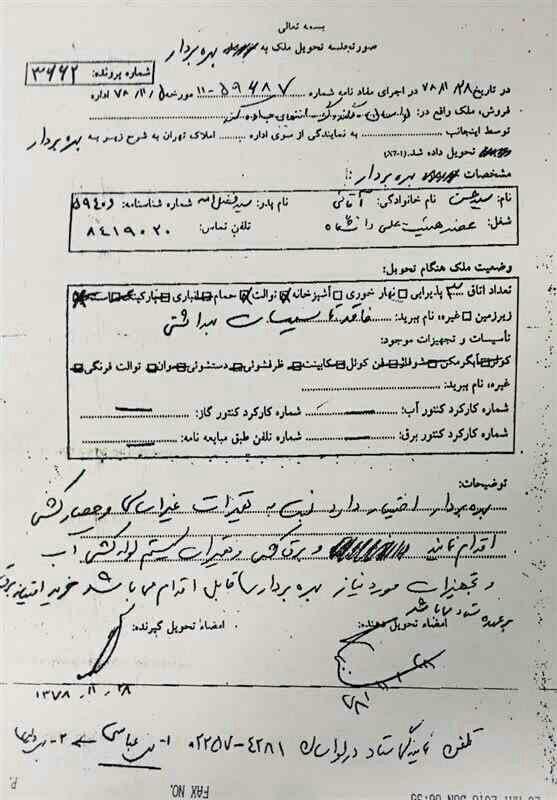 بسمه تعالی
صورتجلسه تحویل ملک به بهره بردار
شماره پرونده: ۳۶۶۲
در تاریخ ۷۸/۱۱/۲۸ در اجرای مفاد نامه شماره ۵۹۴۸۷-۱۱ مورخه ۷۸/۱۱/۵ اداره
فروش، ملک واقع در: لواسان
توسط اینجانب به نمایندگی از سوی اداره املاک تهران به شرح زیر به بهره بردار
تحویل داده شد.
مشخصات بهره بردار:
نام: سید حسن نام خانوادگی: آقائی نام پدر: سید فضل اله شماره شناسنامه: ۵۹۴۰۶
شغل: عضو هیئت علمی دانشگاه تلفن تماس: ۸۴۱۹۰۲۰
وضعیت ملک هنگام تحویل:
تعداد اتاق ۳ پذیرایی نهار خوری آشپزخانه توالت حمام انباری پارکینگ
زیرزمین غیره، نام ببرید: فاقد تاسیسات بهداشتی
تأسیسات و تجهیزات موجود:
کولر آبگرمکن شوفاژ فن کوئل کابینت ظرفشوئی دستشوئی وان توالت فرنگی
غیره، نام ببرید:
شماره کارکرد کنتور آب: شماره کارکرد کنتور گاز:
شماره کارکرد کنتور برق: شماره تلفن طبق مبایعه نامه:
توضیحات:
بهره بردار اختیار دارد نسبت به تغییرات غیراساسی و حصارکشی
اقدام نماید و برق کشی و تغییرات سیستم لوله کشی آب
و تجهیزات مورد نیاز بهره بردار قابل اقدام میباشد
بر عهده ستاد میباشد
امضاء تحویل دهنده: امضاء تحویل گیرنده:
۱۳۷۸.۱۱.۲۸
تلفن نمایندگی ستاد در لواسان ۴۲۸۱-۰۲۲۵۷ ۱- عباسی ۲-
P.
FAX NO.